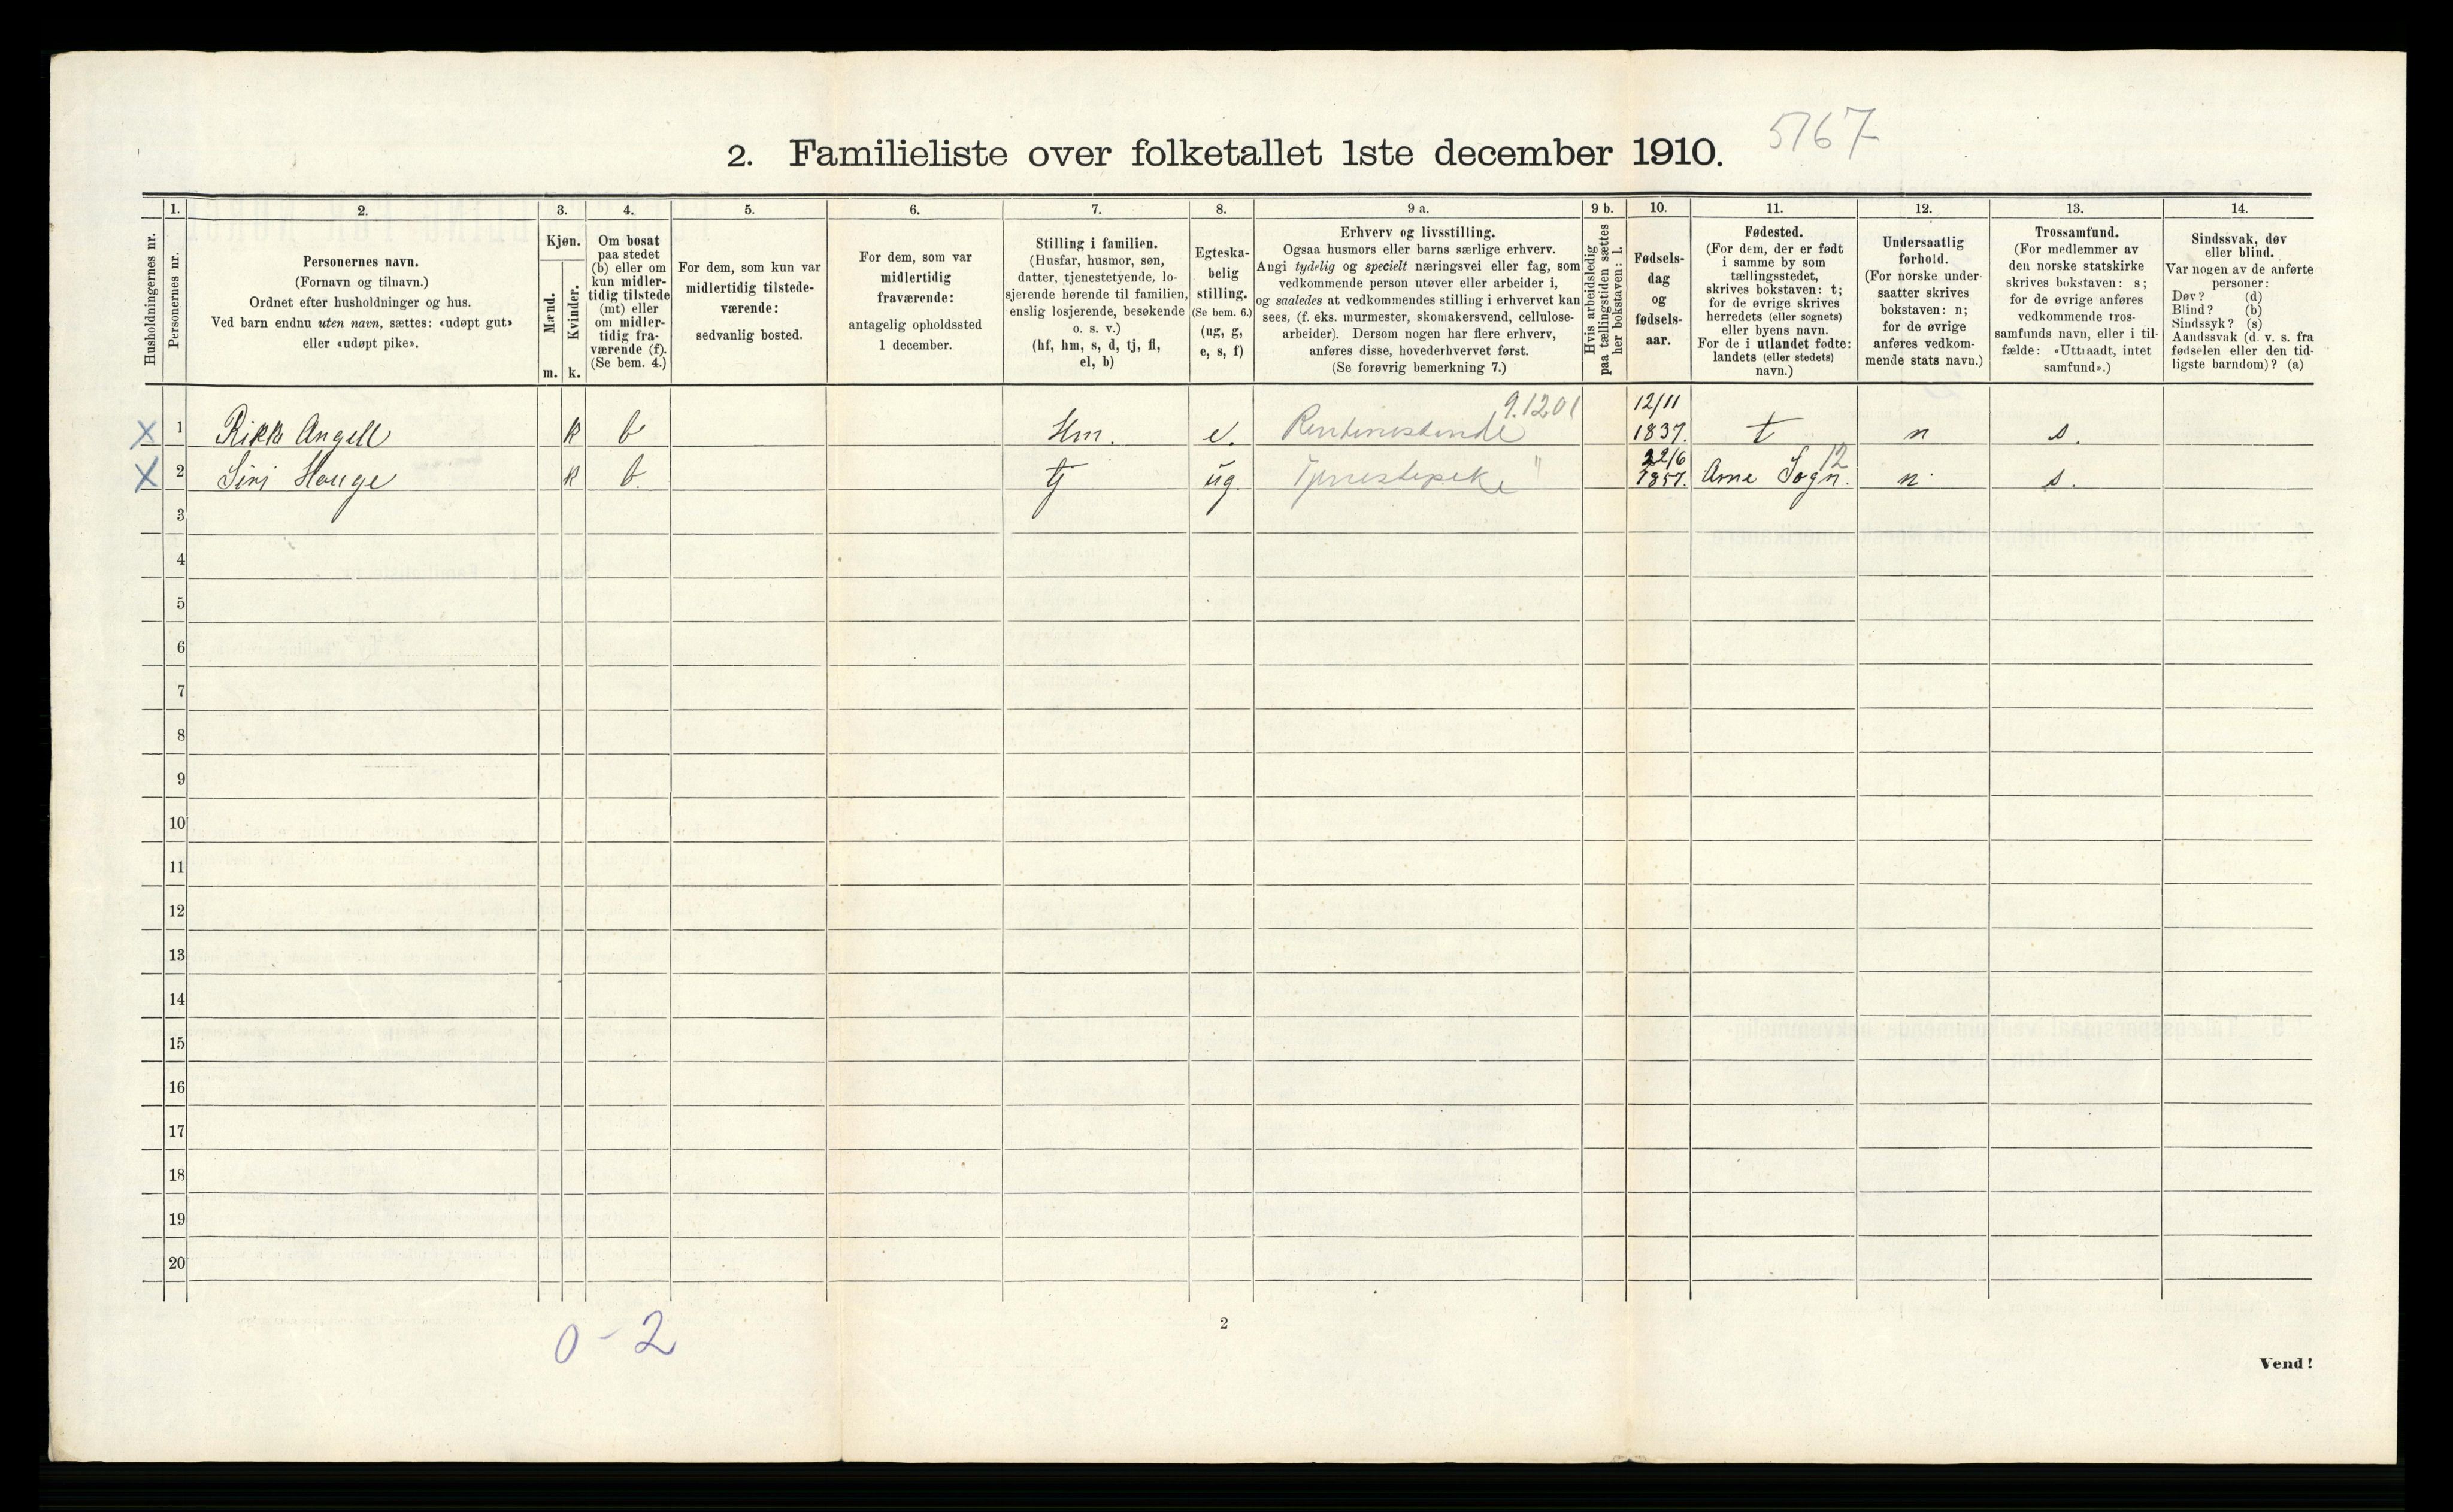 5167
2. Familieliste over folketallet 1ste december 1910.
Husholdningernes nr.
1.
Personernes nr.
2.
Personernes navn.
(Fornavn og tilnavn.)
Ordnet efter husholdninger og hus.
Ved barn endnu uten navn, sættes: «udøpt gut»
eller «udøpt pike».
3.
Kjøn.
Mænd.
Kvinder.
m. k.
4.
Om bosat
paa stedet
(b) eller om
kun midler-
tidig tilstede
(mt) eller
om midler-
tidig fra-
værende (f).
(Se bem. 4.)
5.
For dem, som kun var
midlertidig tilstede-
værende:
sedvanlig bosted.
6.
For dem, som var
midlertidig
fraværende:
antagelig opholdssted
1 december.
7.
Stilling i familien.
(Husfar, husmor, søn,
datter, tjenestetyende, lo-
sjerende hørende til familien,
enslig losjerende, besøkende
o. s. v.)
(hf, hm, s, d, tj, fl,
el, b)
8.
Egteska-
belig
stilling.
(Se bem. 6.)
(ug, g,
e, s, f)
9 a.
Erhverv og livsstilling.
Ogsaa husmors eller barns særlige erhverv.
Angi tydelig og specielt næringsvei eller fag, som
vedkommende person utøver eller arbeider i,
og saaledes at vedkommendes stilling i erhvervet kan
sees, (f. eks. murmester, skomakersvend, cellulose-
arbeider). Dersom nogen har flere erhverv,
anføres disse, hovederhvervet først.
(Se forøvrig bemerkning 7.)
9 b.
Hvis arbeidsledig
paa tællingstiden sættes
her bokstaven: l.
10.
Fødsels-
dag
og
fødsels-
aar.
11.
Fødested.
(For dem, der er født
i samme by som
tællingsstedet,
skrives bokstaven: t;
for de øvrige skrives
herredets (eller sognets)
eller byens navn.
For de i utlandet fødte:
landets (eller stedets)
navn.)
12.
Undersaatlig
forhold.
(For norske under-
saatter skrives
bokstaven: n;
for de øvrige
anføres vedkom-
mende stats navn.)
13.
Trossamfund.
(For medlemmer av
den norske statskirke
skrives bokstaven: s;
for de øvrige anføres
vedkommende tros-
samfunds navn, eller i til-
fælde: «Uttraadt, intet
samfund».)
14.
Sindssvak, døv
eller blind.
Var nogen av de anførte
personer:
Døv? (d)
Blind? (b)
Sindssyk? (s)
Aandssvak (d. v. s. fra
fødselen eller den tid-
ligste barndom)? (a)
9.1201 12/11
X 1 Rikke Angell k b Hm. e. Rentenistinde 1837. t n s.
22/6 12
X 2 Siri Hauge k b tj ug. Tjenestepike " 1857. Arne Sogn. n. s.
3
4
5
6
7
8
9
10
11
12
13
14
15
16
17
18
19
20
0 - 2
2
Vend!